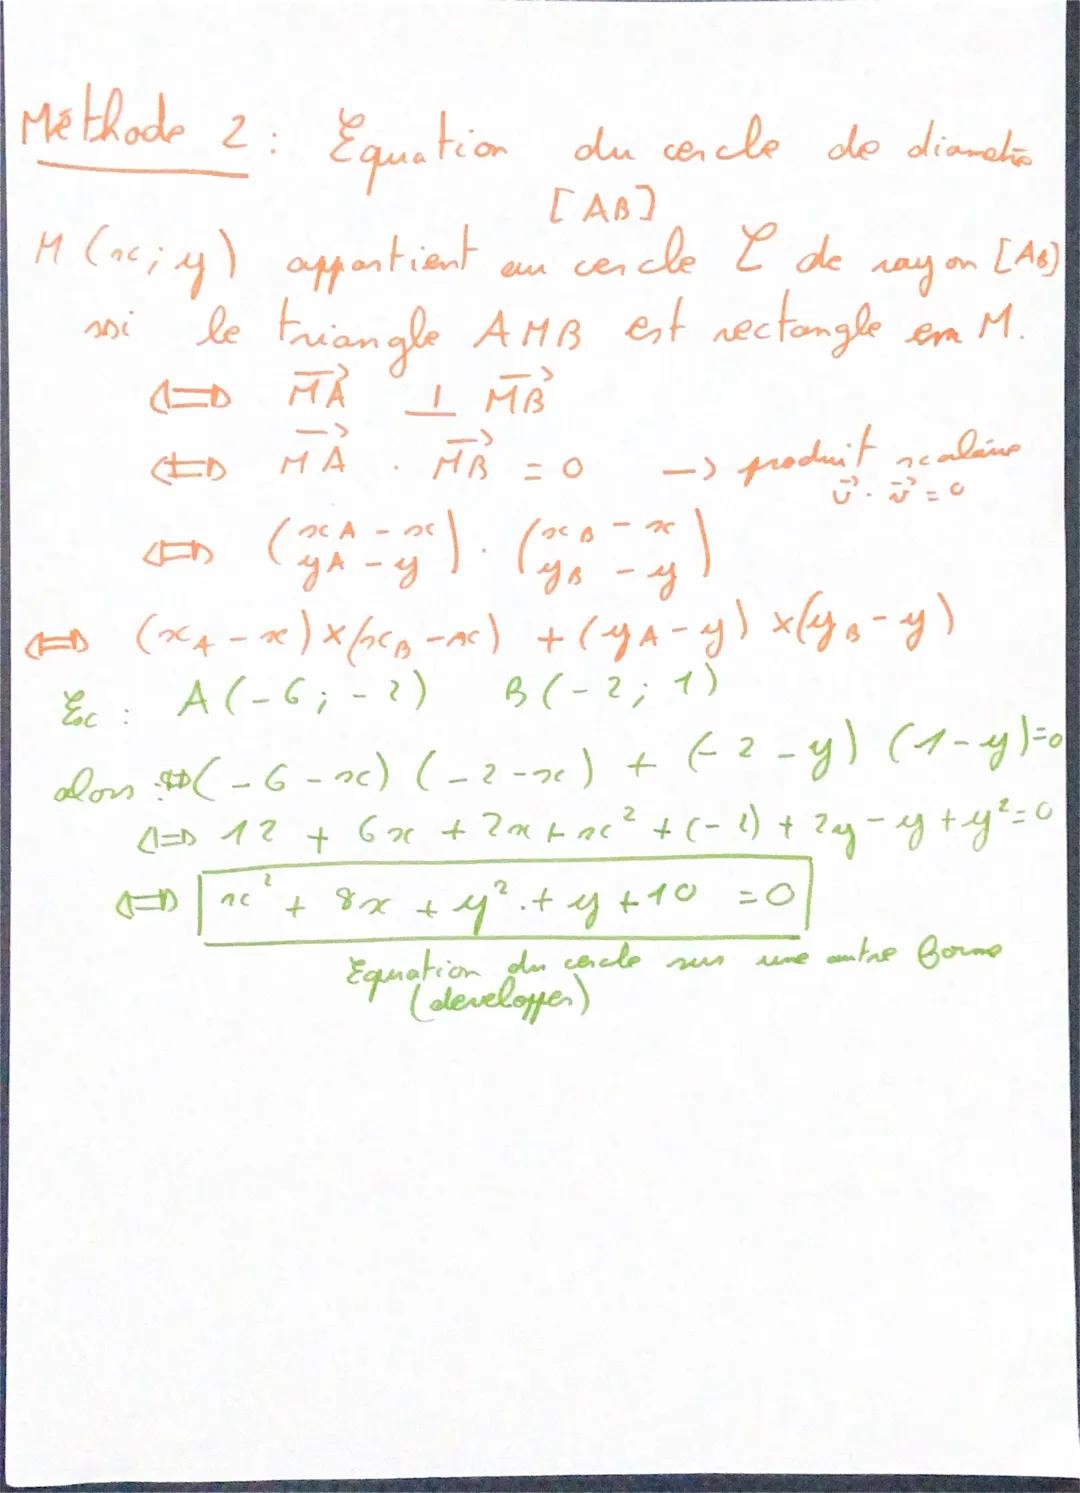 Méthode 2 : Equation du cercle de diamètre
[AB]
M (x; y) appartient au cercle C de rayon [AB]
ssi le triangle AMB est rectangle en M.
⟺ \vec{MA} ⊥ \vec{MB}
⟺ \vec{MA} . \vec{MB} = 0 → produit scalaire
\vec{u} . \vec{v} = 0
⟺ (x_A - x ; y_A - y) . (x_B - x ; y_B - y)
⟺ (x_A - x) × (x_B - x) + (y_A - y) × (y_B - y)
Ex : A (-6; -2) B (-2; 1)
alors (-6 - x) (-2 - x) + (-2 - y) (1 - y) = 0
⟺ 12 + 6x + 2x + x² + (-2) + 2y - y + y² = 0
⟺ x² + 8x + y² + y + 10 = 0
Equation du cercle sur une autre forme
(developper)